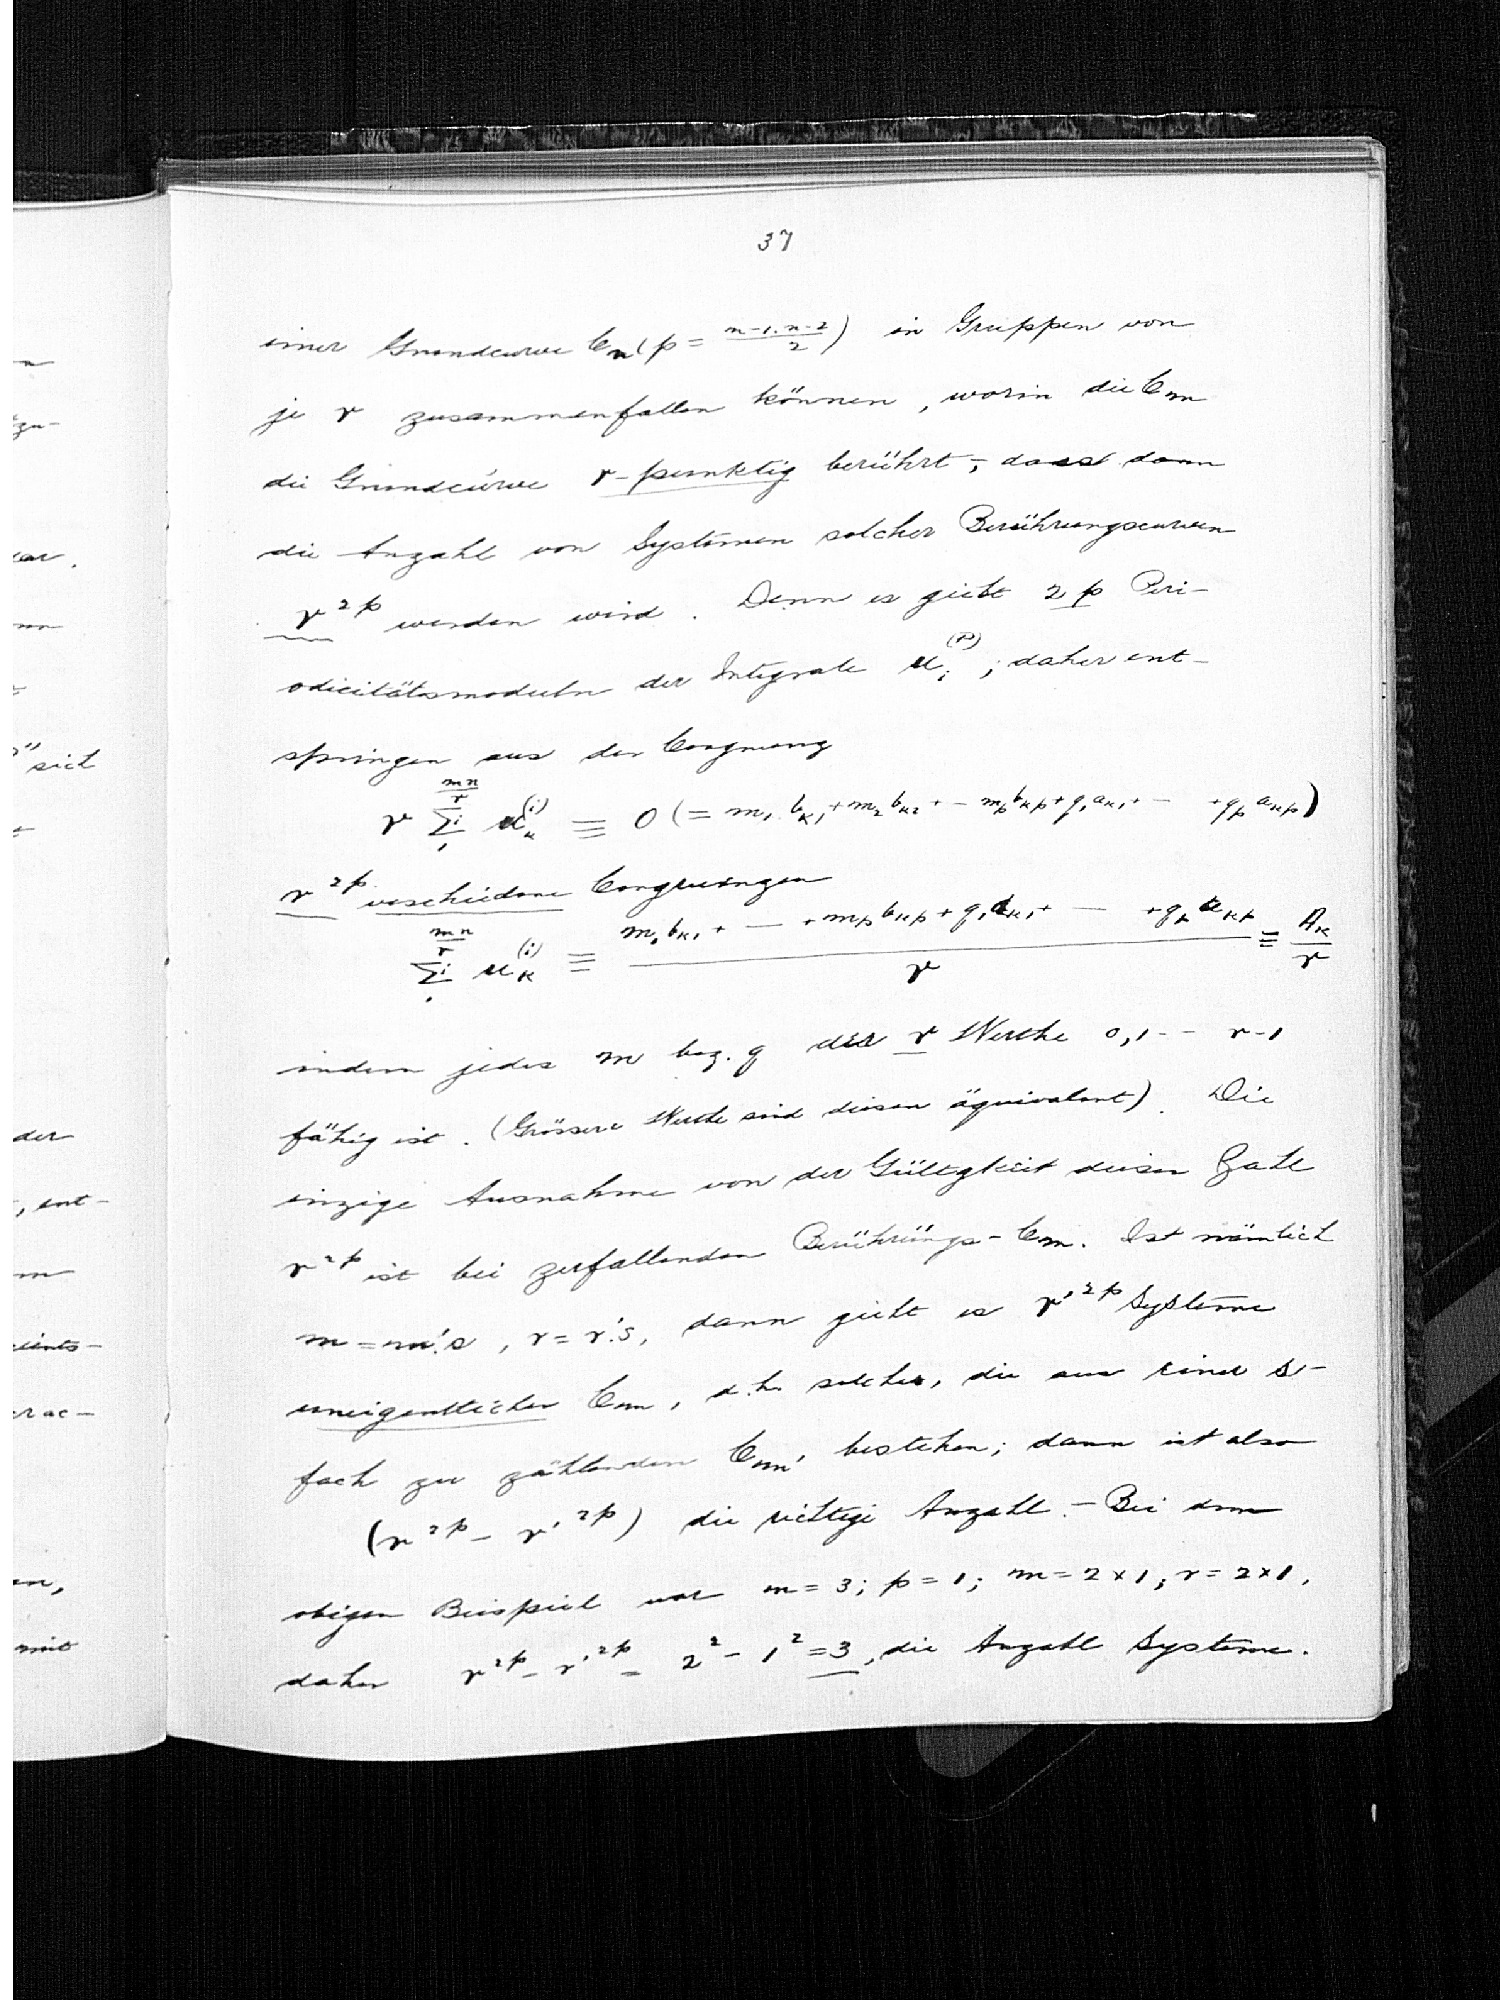 37
einer Grundcurve Cₙ(p = n-1.n-2/2) in Gruppen von
je r zusammenfallen können, worin die Cm
die Grundcurve r-punktig berührt, – dass dann
die Anzahl von Systemen solcher Berührungscurven
r^2p werden wird. Denn es giebt 2p Peri-
odicitätsmoduln der Integrale u_i^(p); daher ent-
springen aus der Congruenz
r ∑_1^{mn/r} i u_κ^(i) ≡ 0 (= m₁ b_κ1 + m₂ b_κ2 + – m_p b_κp + q₁ a_κ1 + – + q_p a_κp)
r^2p verschiedene Congruenzen
∑_1^{mn/r} i u_κ^(i) ≡ (m₁ b_κ1 + — + m_p b_κp + q₁ a_κ1 + — + q_p a_κp)/r ≡ A_κ/r
indem jedes m bez. q der r Werthe 0,1 -- r-1
fähig ist. (Grössere Werthe sind diesen äquivalent). Die
einzige Ausnahme von der Gültigkeit dieser Zahl
r^2p ist bei zerfallenden Berührungs-Cm. Ist nämlich
m = m'.s, r = r'.s, dann giebt es r'^2p Systeme
uneigentlicher Cm, d.h. solcher, die aus einer s-
fach zu zählenden Cm' bestehen; dann ist also
(r^2p - r'^2p) die richtige Anzahl. – Bei dem
obigen Beispiel war m = 3; p = 1; m = 2×1, r = 2×1,
daher r^2p - r'^2p = 2² - 1² = 3, die Anzahl Systeme.